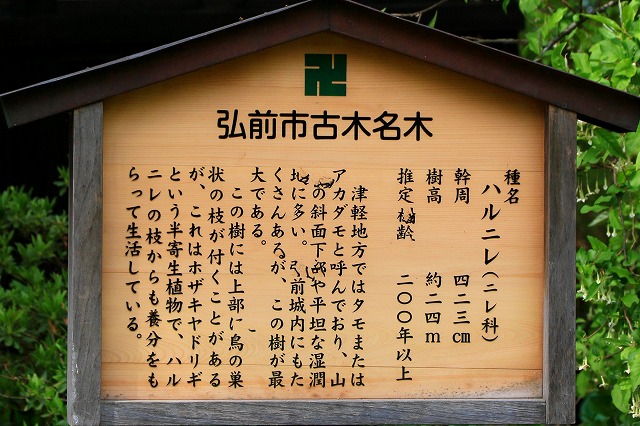 卍
弘前市古木名木
種名
ハルニレ(ニレ科)
幹周 四二三㎝
樹高 約二四m
推定樹齢 二〇〇年以上
津軽地方ではタモまたは
アカダモと呼んでおり、山
の斜面下部や平坦な湿潤
地に多い。弘前城内にもた
くさんあるが、この樹が最
大である。
この樹には上部に鳥の巣
状の枝が付くことがある
が、これはホザキヤドリギ
という半寄生植物で、ハル
ニレの枝からも養分をも
らって生活している。